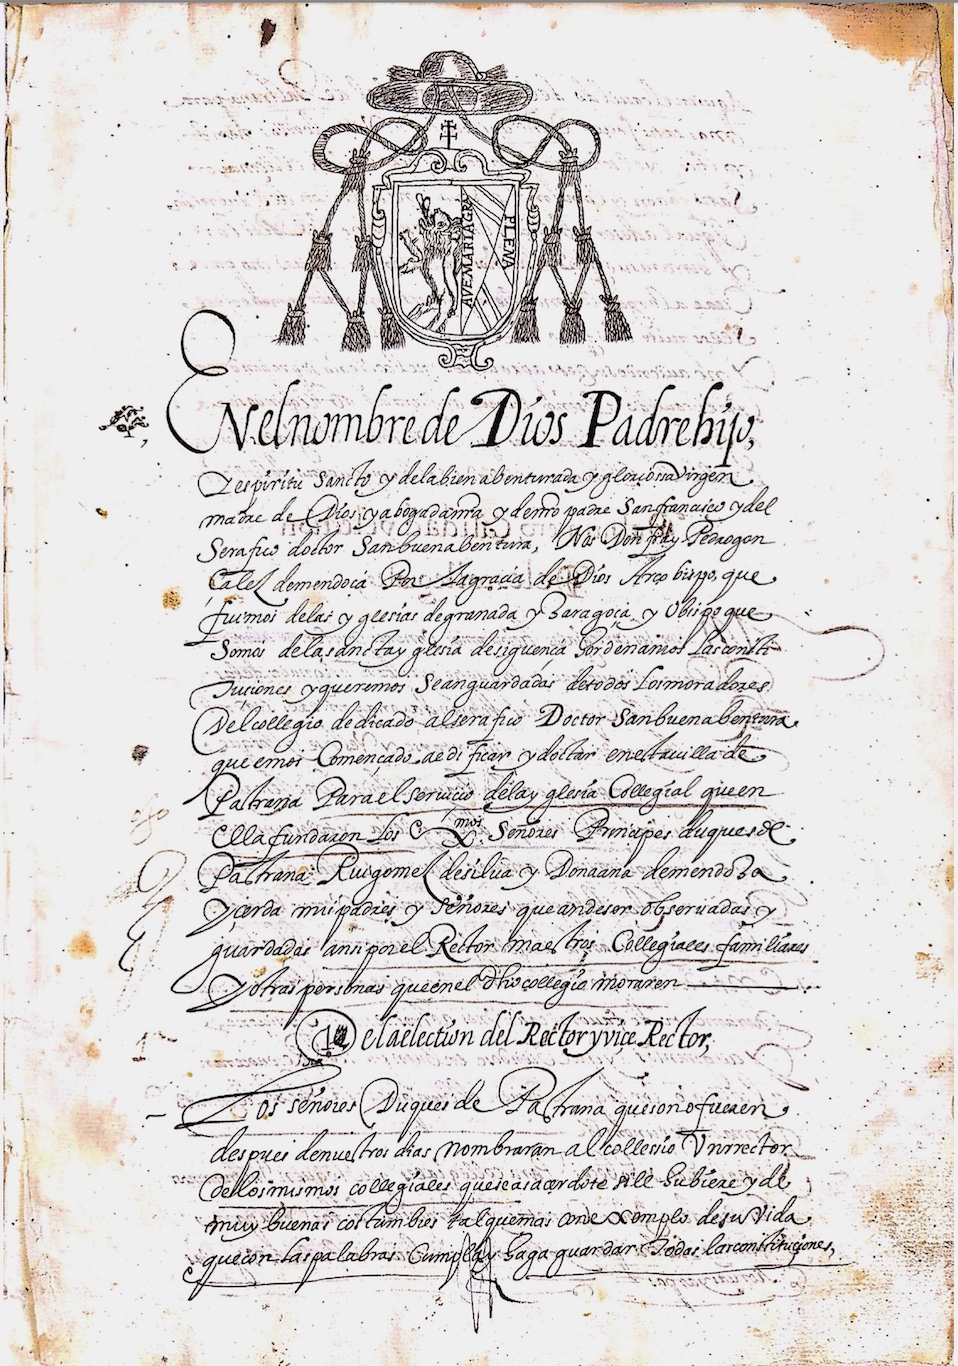 AVE MARIA GRA
PLENA
En el nombre de Dios Padre hijo,
Y espiritu Sancto y de la bien abenturada y gloriossa virgen
madre de Dios y abogada nra y de nro padre San francisco y del
Serafico doctor San buena bentura, Nos Don fray Pedro gon
çalez de mendoça Por la gracia de Dios Arçobispo, que
fuimos de las yglesias de granada y Çaragoça y Obispo que
Somos de la sancta yglesia de siguença hordenamos las consti
tuçiones y queremos Sean guardadas de todos los moradores
del collegio dedicado al serafico Doctor San buena bentura
que emos Començado aedificar y doctar en esta villa de
Pastrana Para el serviçio de la yglesia Collegial que en
Ella fundaron los Exmos Señores Prinçipes duques de
Pastrana Rui gomez de silua y Dona ana de mendoza
Y çerda mis padres y Señores que an de ser obseruadas y
guardadas ansi por el Rector maestros Collegiales familiares
Y otras personas que en el dho collegio moraren
1a De la election del Rector y viçe Rector,
Los señores Duques de Pastrana que son o fueren
despues de nuestros dias nombraran al collegio Un rrector
de los mismos collegiales que sea saçerdote si le hubiere y de
muy buenas costumbres tal que mas con exemplo de su vida
que con las palabras Cumpla y haga guardar Todas las constituçiones,